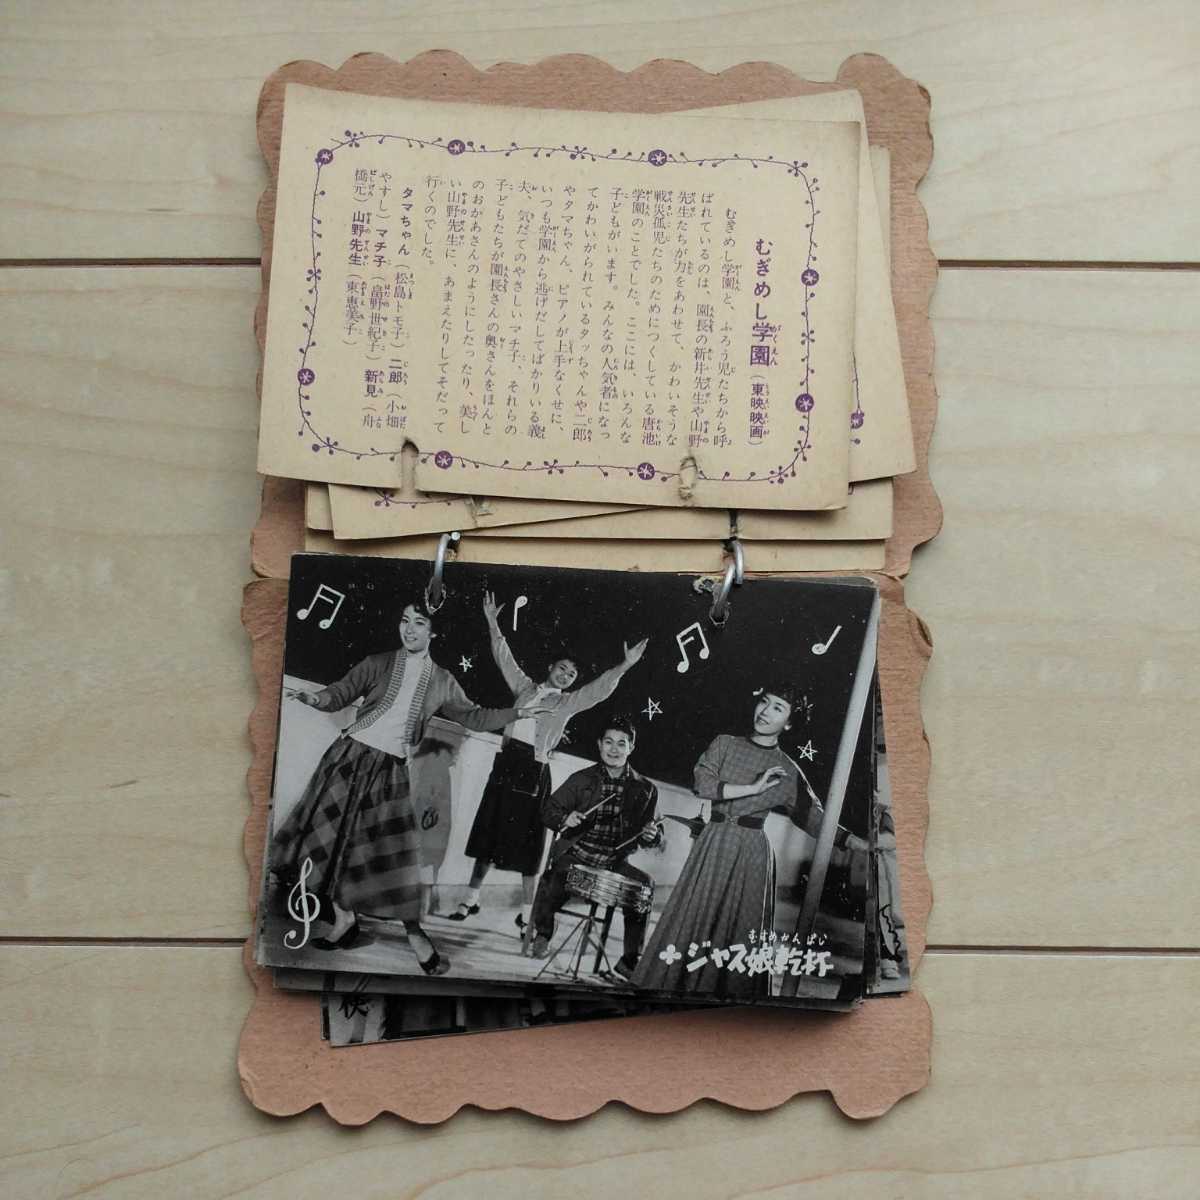 むぎめし学園（東映映画）
むぎめし学園と、ふろう児たちから呼
ばれているのは、園長の新井先生や山野
先生たちが力をあわせて、かわいそうな
戦災孤児たちのためにつくしている唐池
学園のことでした。ここには、いろんな
子どもがいます。みんなの人気者になっ
てかわいがられているタッちゃんや二郎
やタマちゃん、ピアノが上手なくせに、
いつも学園から逃げだしてばかりいる義
夫、気だてのやさしいマチ子、それらの
子どもたちが園長さんの奥さんをほんと
のおかあさんのようにしたったり、美し
い山野先生に、あまえたりしてそだって
行くのでした。
タマちゃん（松島トモ子）二郎（小畑
やすし）マチ子（畠野世紀子）新見（舟
橋元）山野先生（東恵美子）
むすめかんぱい
ジャズ娘乾杯